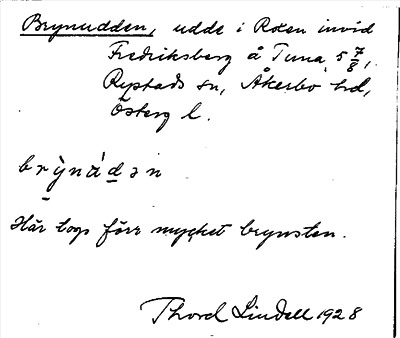 Brynudden, udde i Roxen invid
Fredriksberg å Tuna 5 7/8,
Rystads sn, Åkerbo hd,
Österg l.
brỳnádən
Här togs förr mycket brynsten.
Thord Lindell 1928